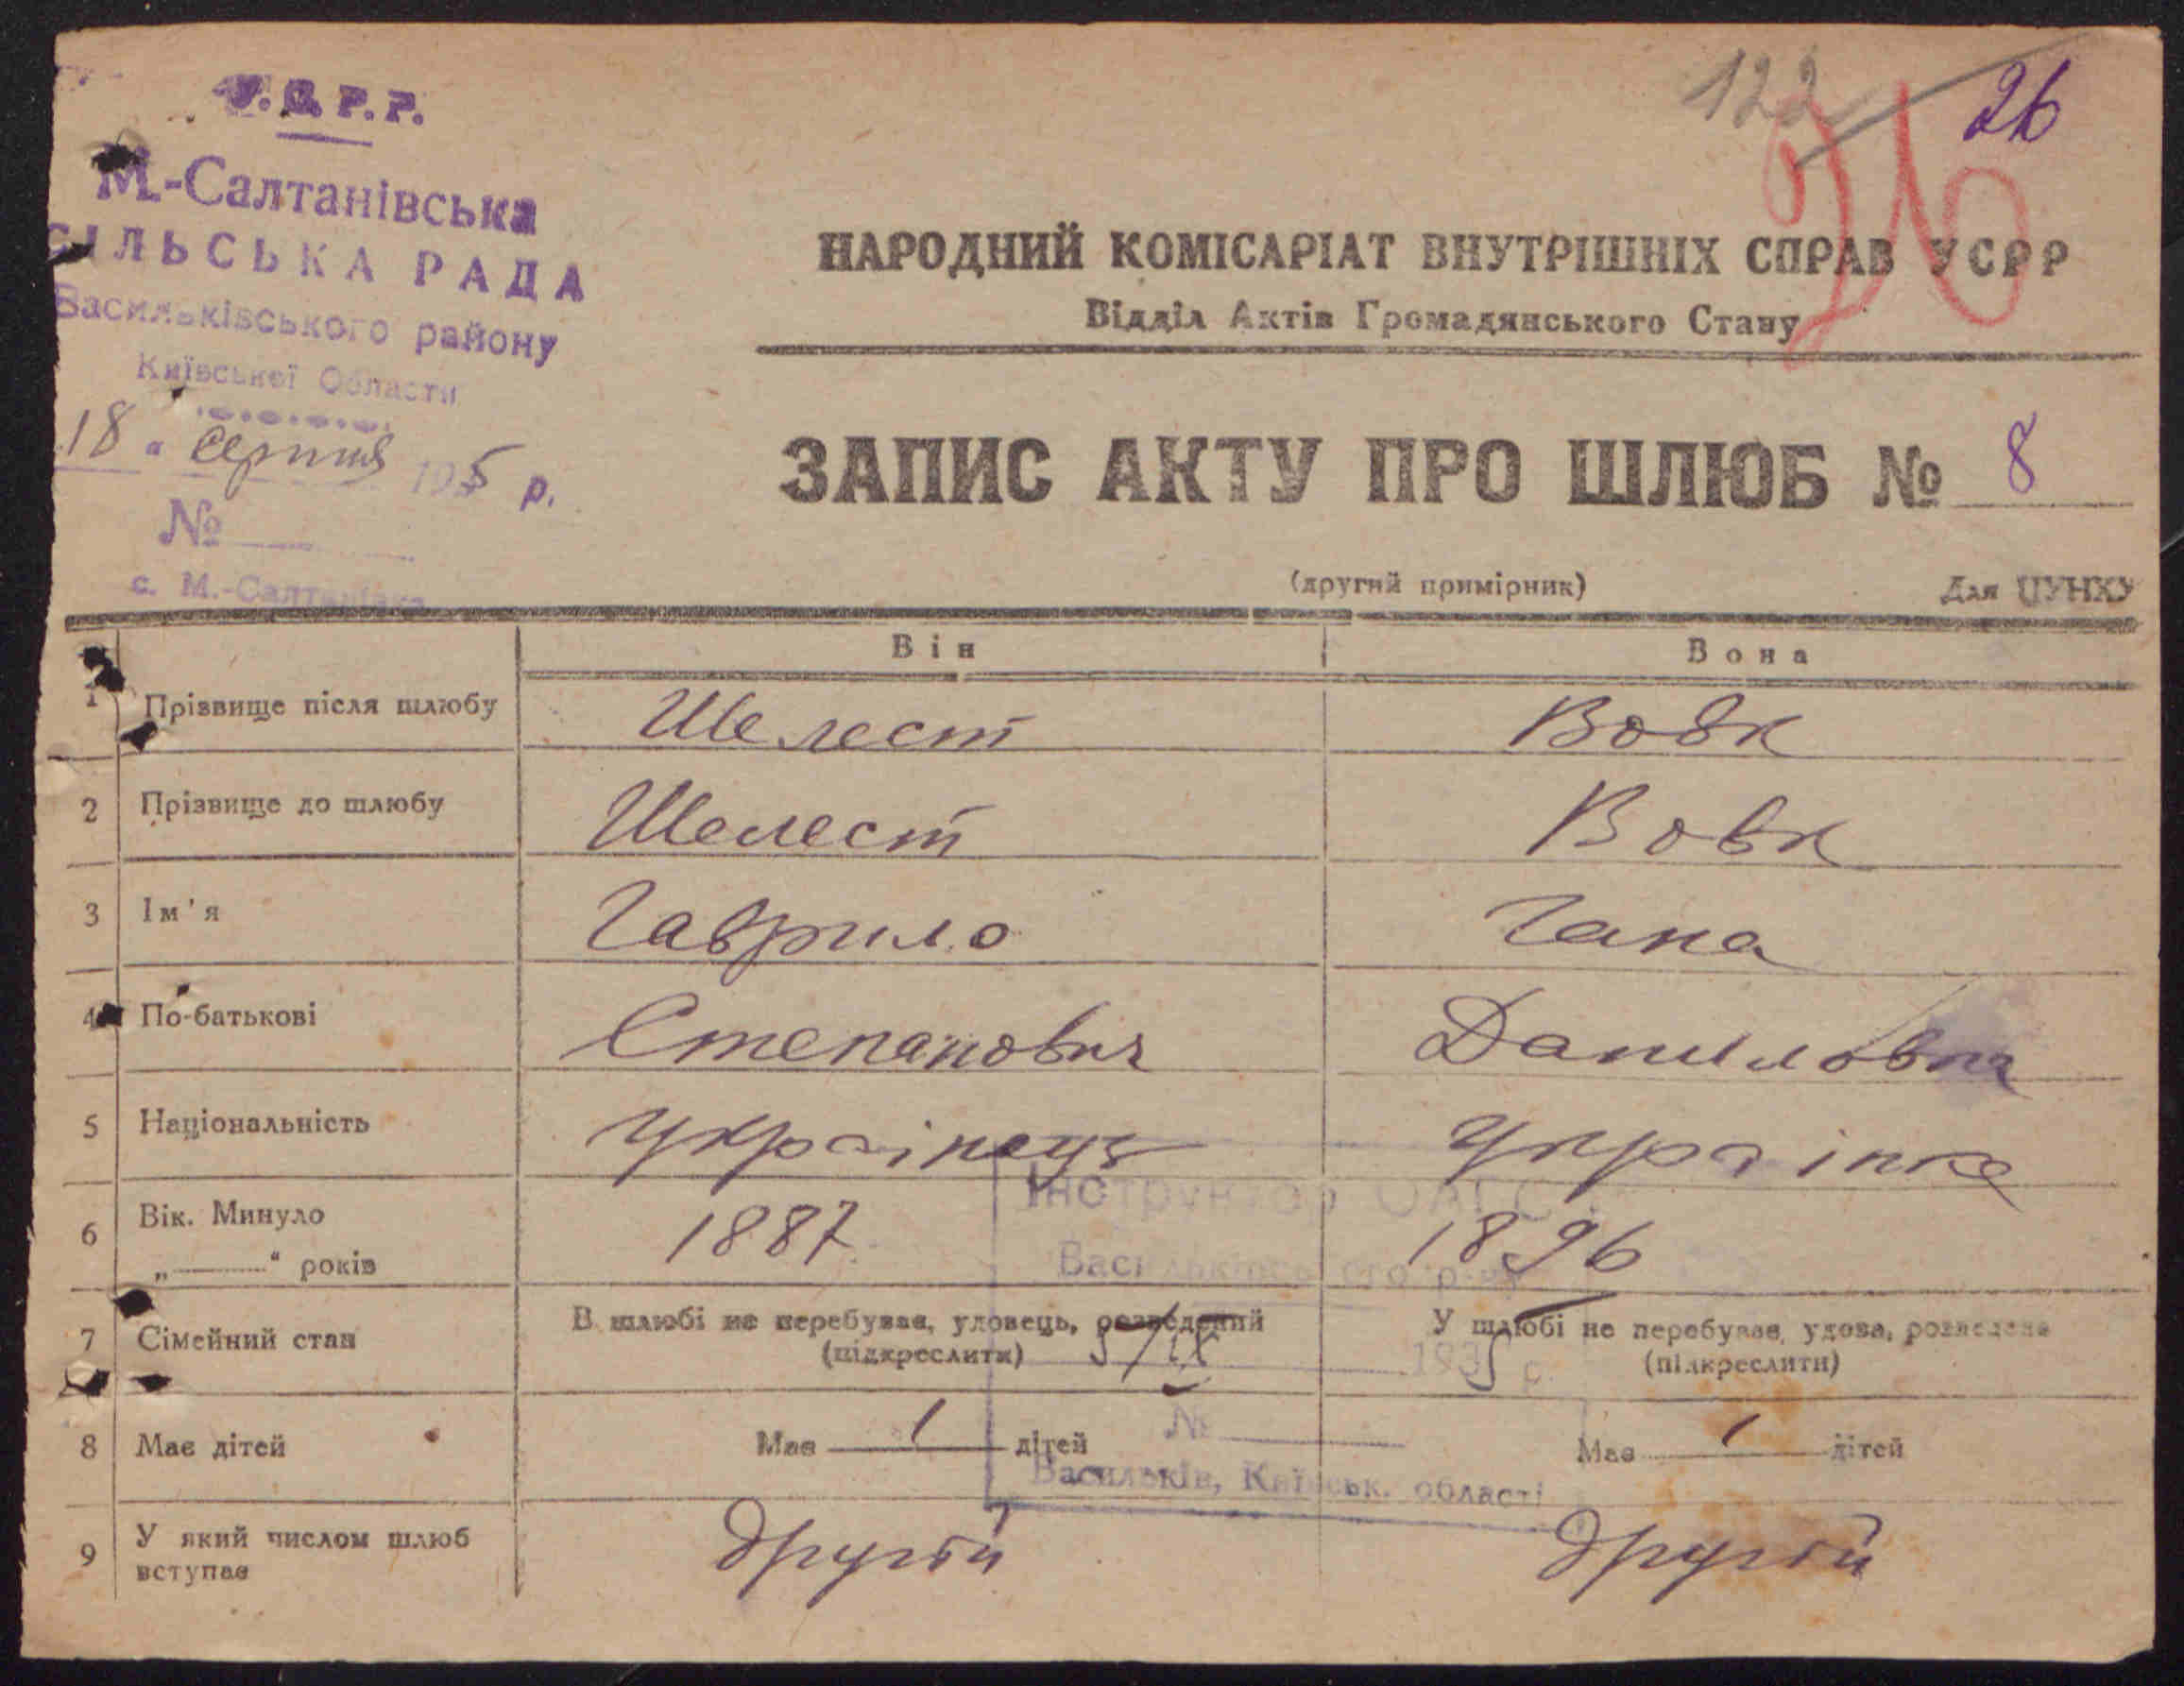 У.С.Р.Р.
М.-Салтанівська
СІЛЬСЬКА РАДА
Васильківського району
Київської Области
18 " серпня 1935 р.
№
с. М.-Салтанівка
122
26
26
НАРОДНИЙ КОМІСАРІАТ ВНУТРІШНІХ СПРАВ УСРР
Відділ Актів Громадянського Стану
ЗАПИС АКТУ ПРО ШЛЮБ № 8
(другий примірник) Для ЦУНХУ
Він Вона
1 Прізвище після шлюбу Шелест Вовк
2 Прізвище до шлюбу Шелест Вовк
3 Ім'я Гаврило Гана
4 По-батькові Степанович Даниловна
5 Національність українець українка
6 Вік. Минуло 1887 1896
„——" років
Інструктор ОАГС
Васильківського р-ну
7 Сімейний стан В шлюбі не перебував, удовець, розведений У шлюбі не перебувае, удова, розведена
(підкреслити) (підкреслити)
5/IX 1935 р.
№
8 Має дітей Має 1 дітей Має 1 дітей
Васильків, Київськ. області
9 У який числом шлюб вступає другий другий